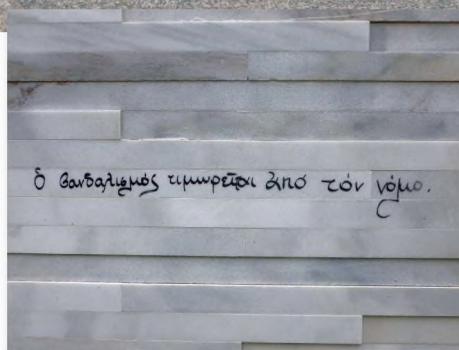 ὁ βανδαλισμός τιμωρεῖται ἀπό τόν νόμο.